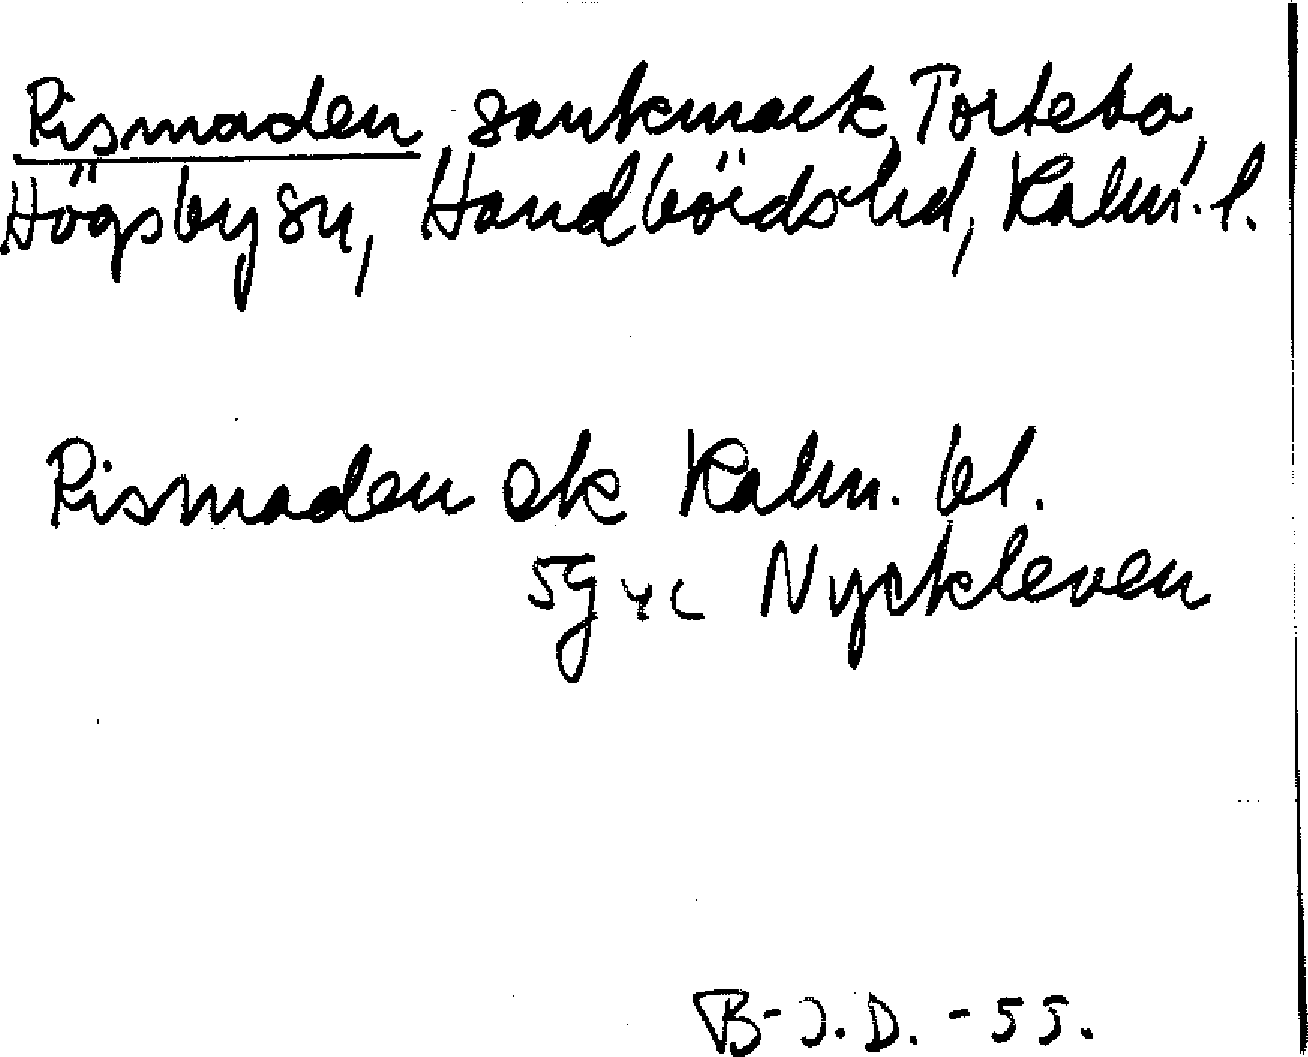 Rismaden, sankmark, Torkebo,
Högsby sn, Handbörds hd, Kalm. l.
Rismaden ek Kalm. bl.
5g yc Nyckleven
B-J.D. -55.